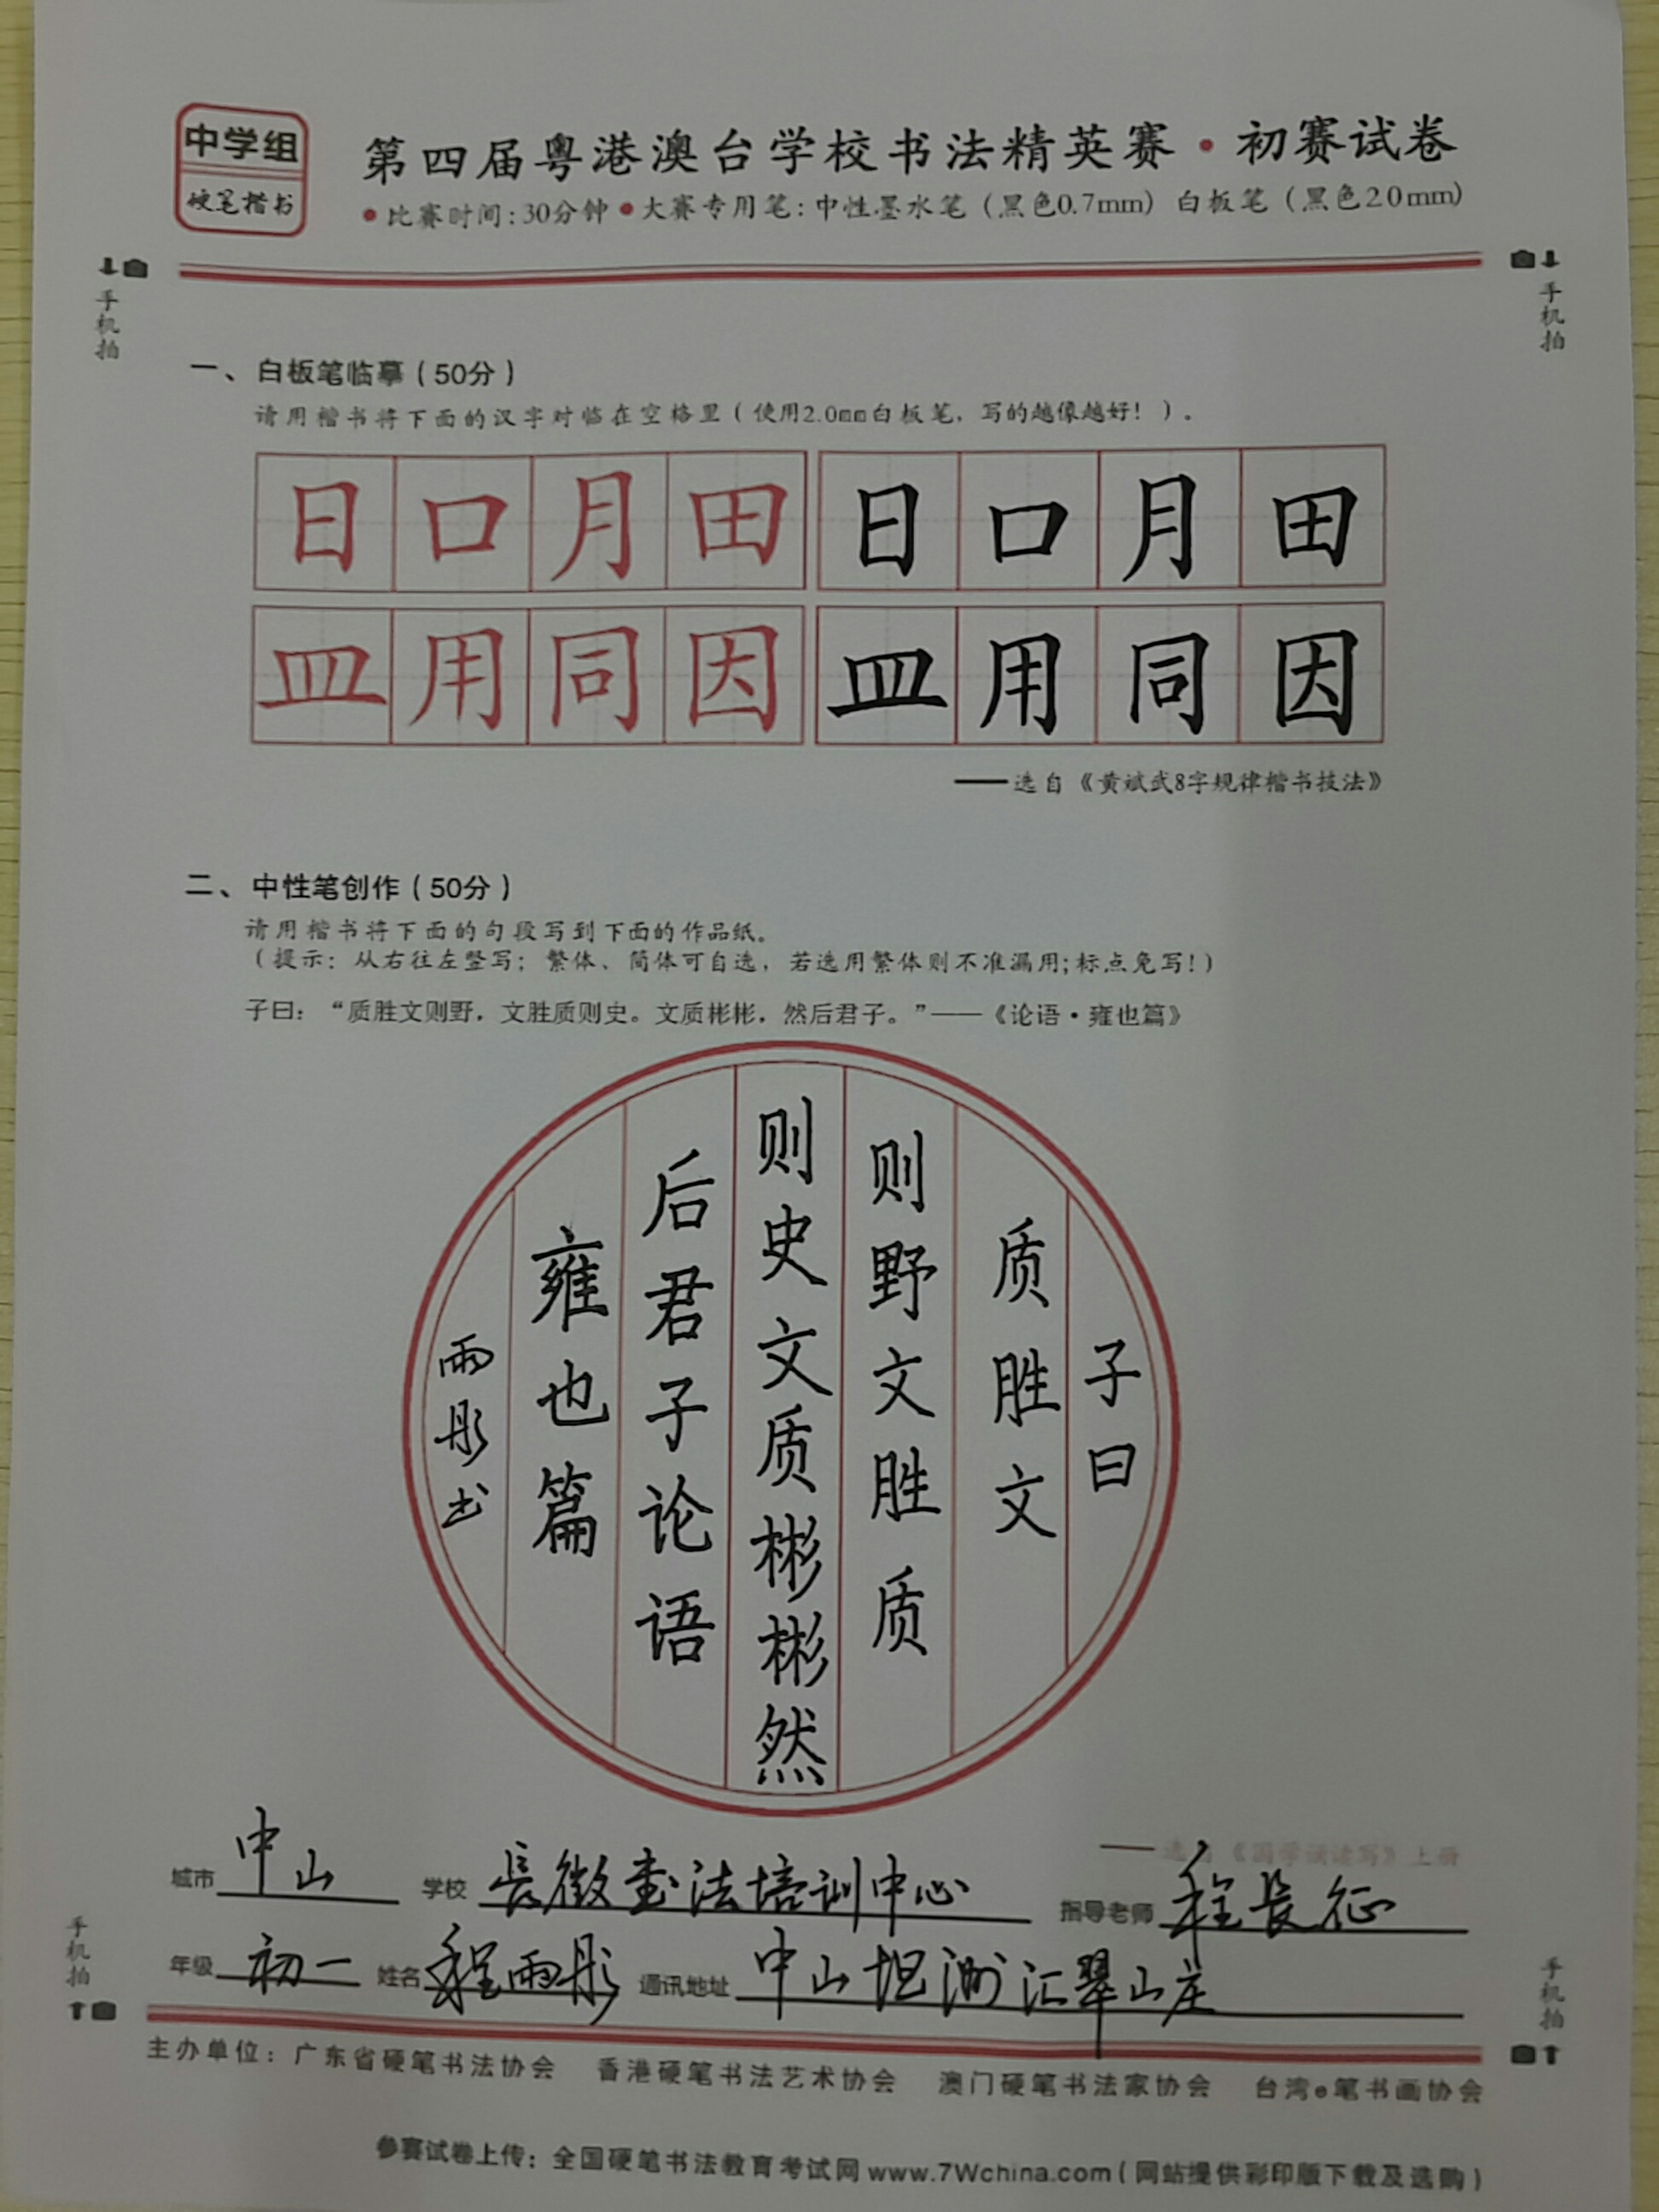 中学组
硬笔楷书
第四届粤港澳台学校书法精英赛·初赛试卷
•比赛时间:30分钟 •大赛专用笔:中性墨水笔（黑色0.7mm）白板笔（黑色2.0mm）
手机拍
手机拍
一、白板笔临摹（50分）
请用楷书将下面的汉字对临在空格里（使用2.0mm白板笔，写的越像越好！）。
日口月田 日口月田
皿用同因 皿用同因
——选自《黄斌武8字规律楷书技法》
二、中性笔创作（50分）
请用楷书将下面的句段写到下面的作品纸。
（提示：从右往左竖写；繁体、简体可自选，若选用繁体则不准漏用;标点免写!）
子曰：“质胜文则野，文胜质则史。文质彬彬，然后君子。”——《论语·雍也篇》
子曰
质胜文
则野文胜质
则史文质彬彬然
后君子论语
雍也篇
雨彤书
——选自《国学诵读写》上册
城市 中山 学校 長徵書法培训中心 指导老师 程長征
年级 初一 姓名 程雨彤 通讯地址 中山坦洲汇翠山庄
手机拍
手机拍
主办单位：广东省硬笔书法协会 香港硬笔书法艺术协会 澳门硬笔书法家协会 台湾e笔书画协会
参赛试卷上传：全国硬笔书法教育考试网www.7Wchina.com（网站提供彩印版下载及选购）